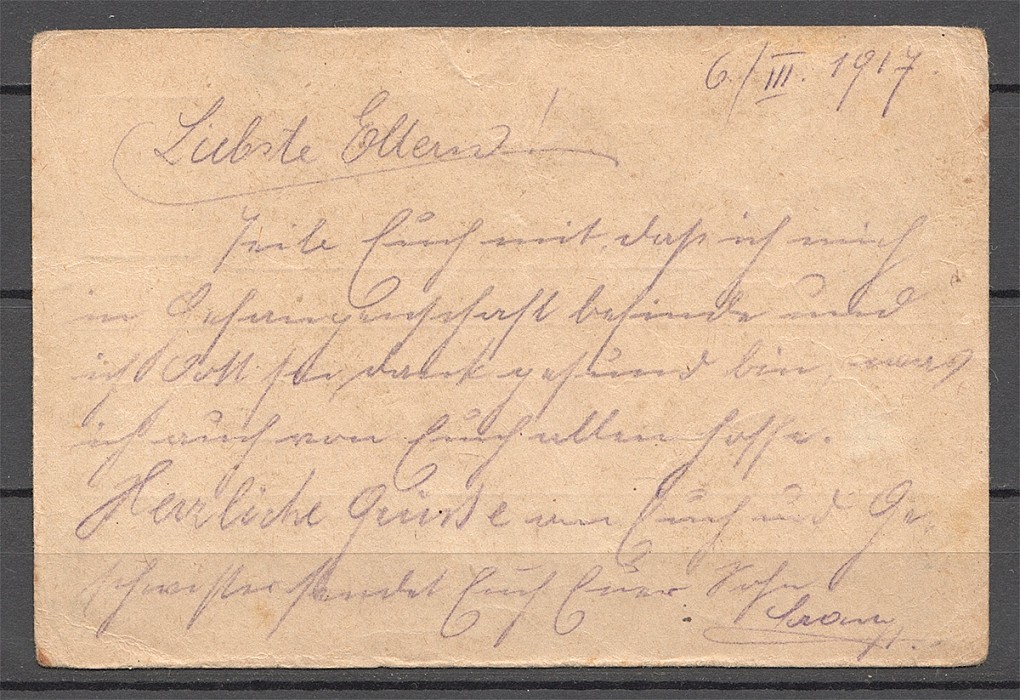 6./III. 1917
Liebste Eltern!
Teile Euch mit, daß ich mich
in Gefangenschaft befinde und
ich Gott sei dank gesund bin, was
ich auch von Euch allen hoffe.
Herzliche Grüsse an Euch und Ge-
schwister sendet Euch Euer Sohn
Franz